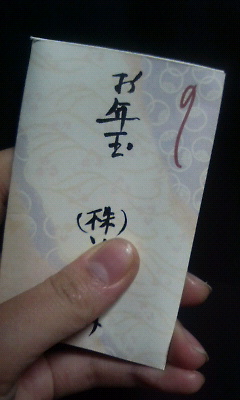 お年玉
(株)
9